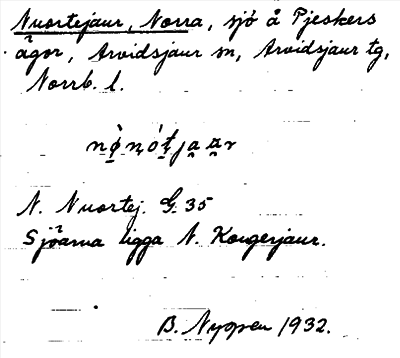 Nuortejaur, Norra, sjö å Pjeskers
ägor, Arvidsjaur sn, Arvidsjaur tg,
Norrb. l.
N. Nuortej. G. 35
Sjöarna ligga N. Kongerjaur.
B. Nygren 1932.